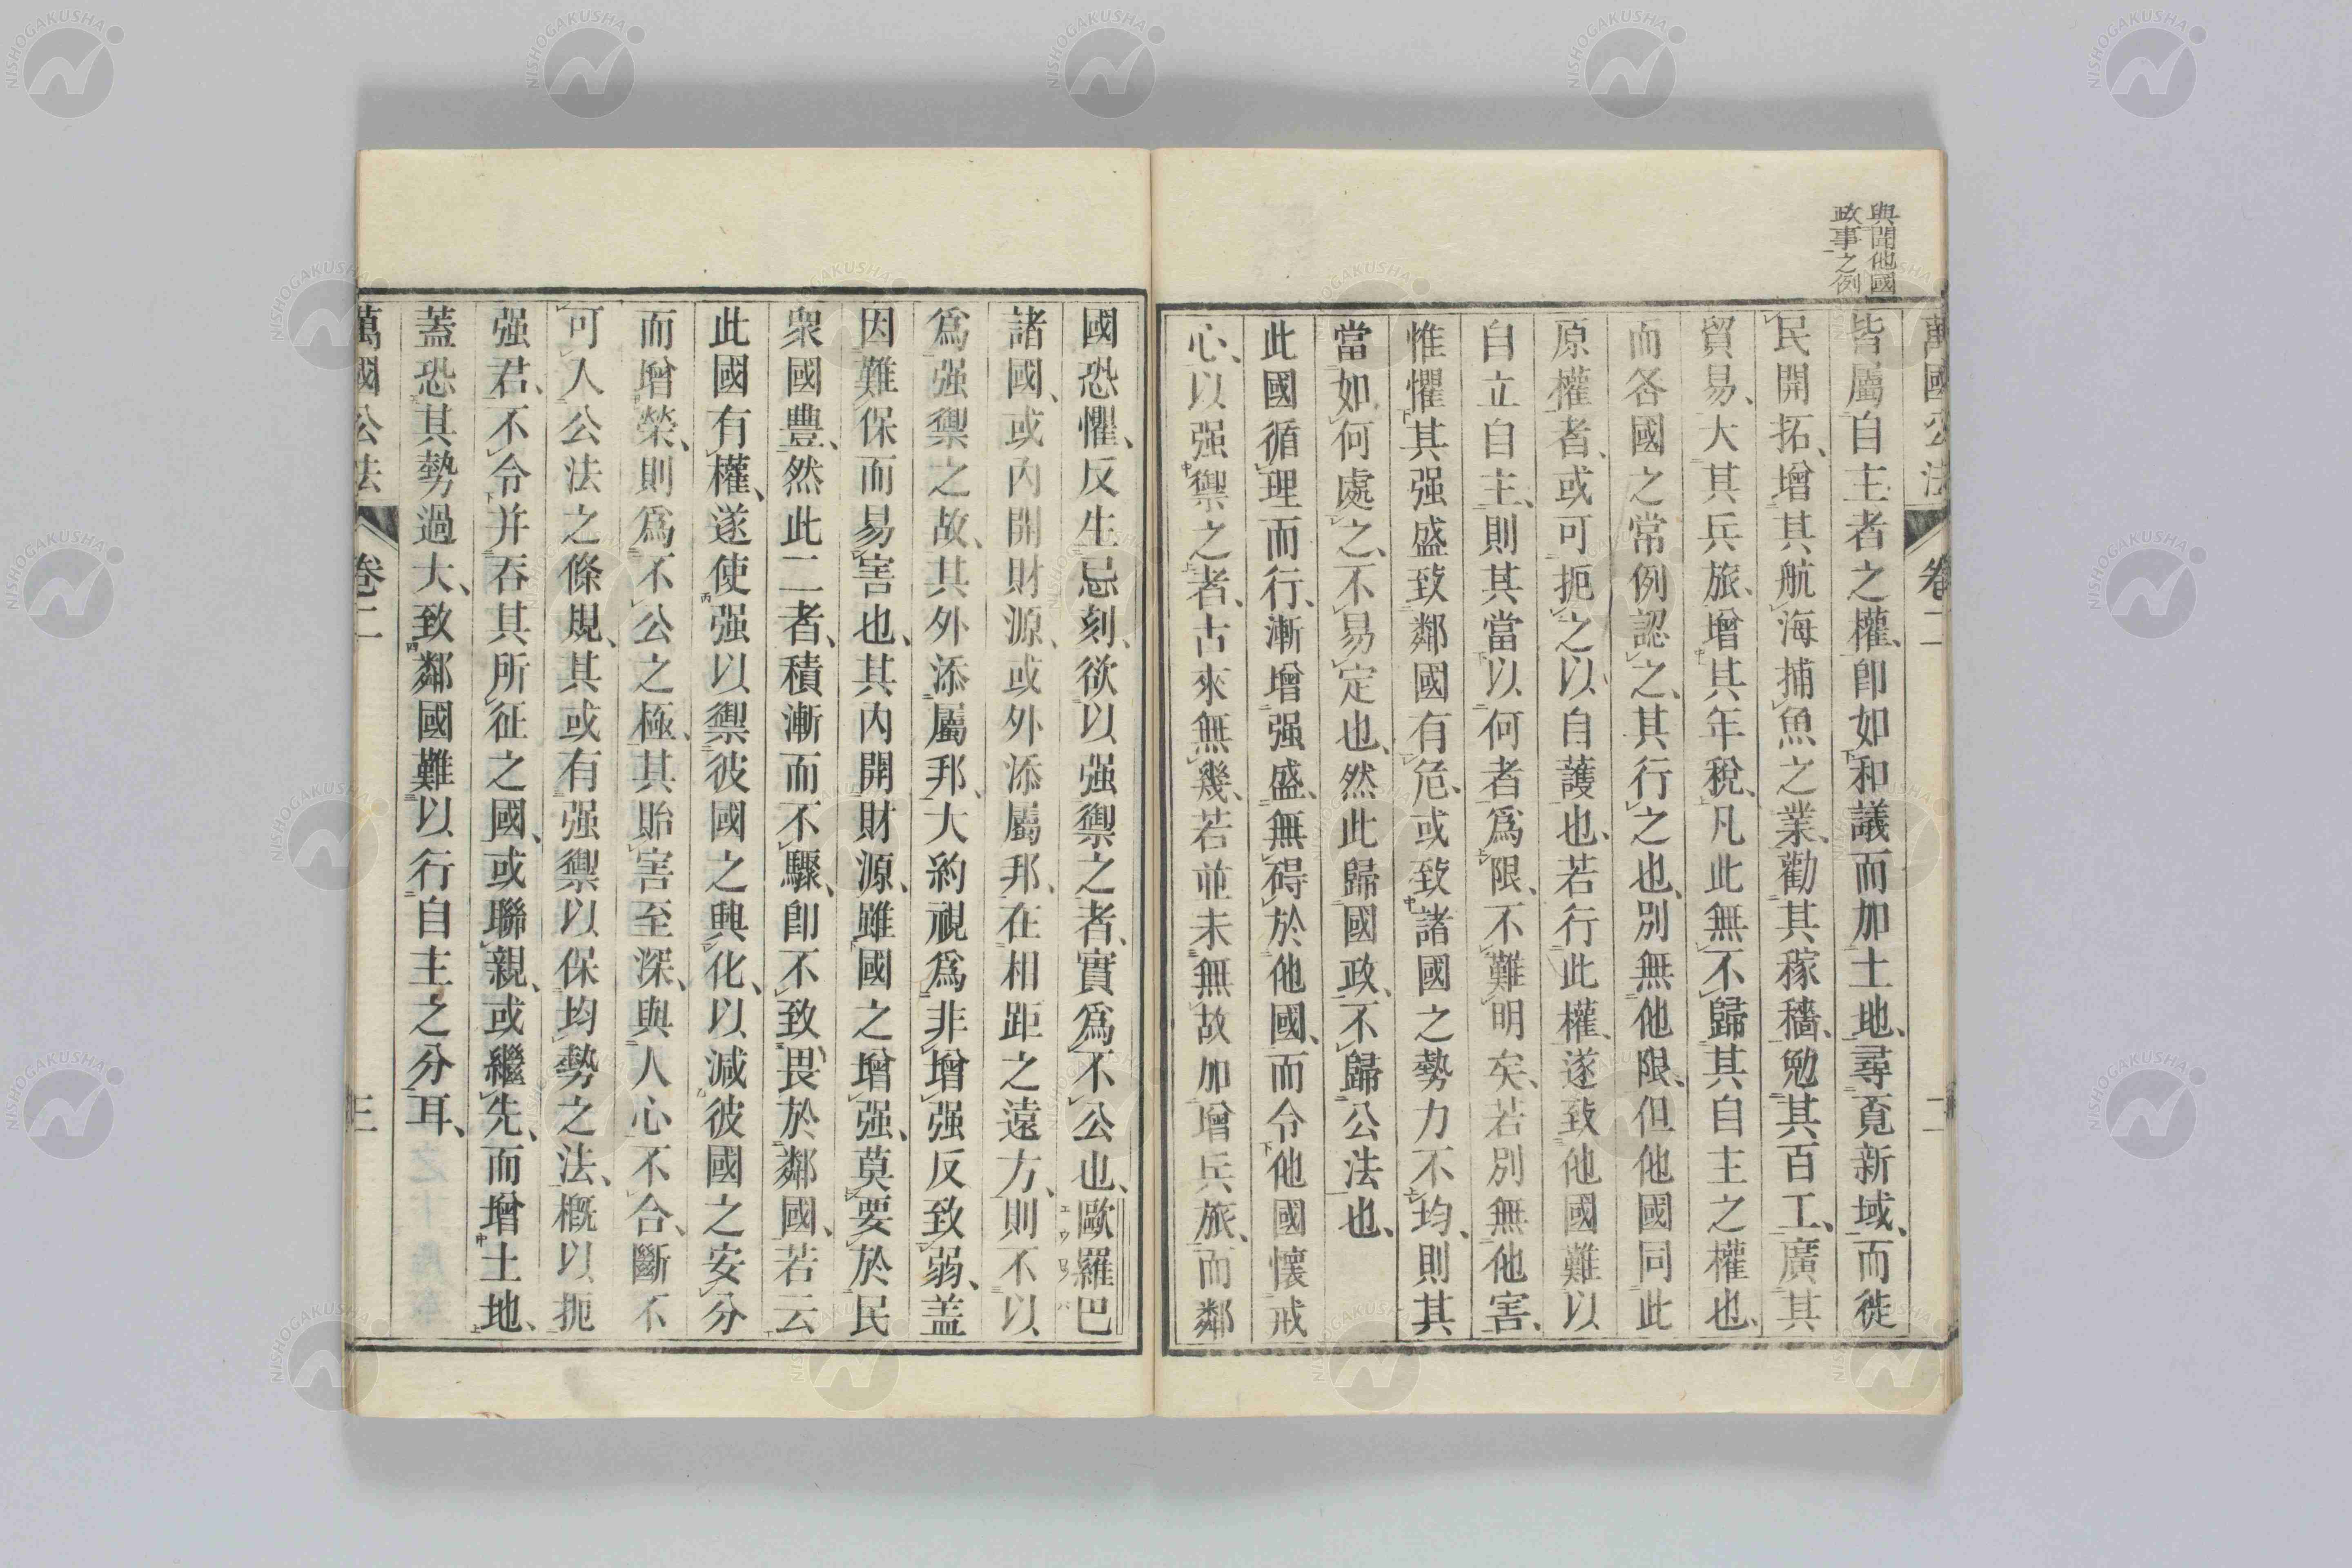 萬國公法 卷二 二
與聞他國
政事之例
皆屬自主者之權、卽如和議而加土地、尋覓新域、而徙
民開拓、增其航海捕魚之業、勸其稼穡、勉其百工、廣其
貿易、大其兵旅、增其年稅、凡此無不歸其自主之權也、
而各國之常例認之、其行之也、別無他限、但他國同此
原權者、或可扼之以自護也、若行此權、遂致他國難以
自立自主、則其當以何者爲限、不難明矣、若別無他害、
惟懼其强盛致鄰國有危、或致諸國之勢力不均、則其
當如何處之、不易定也、然此歸國政、不歸公法也、
此國循理而行、漸增强盛、無碍於他國、而令他國懷戒
心、以强禦之者、古來無幾、若並未無故加增兵旅、而鄰
國恐懼、反生忌刻、欲以强禦之者、實爲不公也、歐羅巴
エウロパ
諸國、或內開財源、或外添屬邦、在相距之遠方、則不以
爲强禦之故、其外添屬邦、大約視爲非增强反致弱、盖
因難保而易害也、其內開財源、雖國之增强、莫要於民
衆國豐、然此二者、積漸而不驟、卽不致畏於鄰國、若云
此國有權、遂使强以禦彼國之興化、以減彼國之安分
而增榮、則爲不公之極、其貽害至深、與人心不合、斷不
可人公法之條規、其或有强禦以保均勢之法、槪以扼
强君、不令并吞其所征之國、或聯親、或繼先、而增土地、
蓋恐其勢過大、致鄰國難以行自主之分耳、
萬國公法 卷二 三
NISHOGAKUSHA